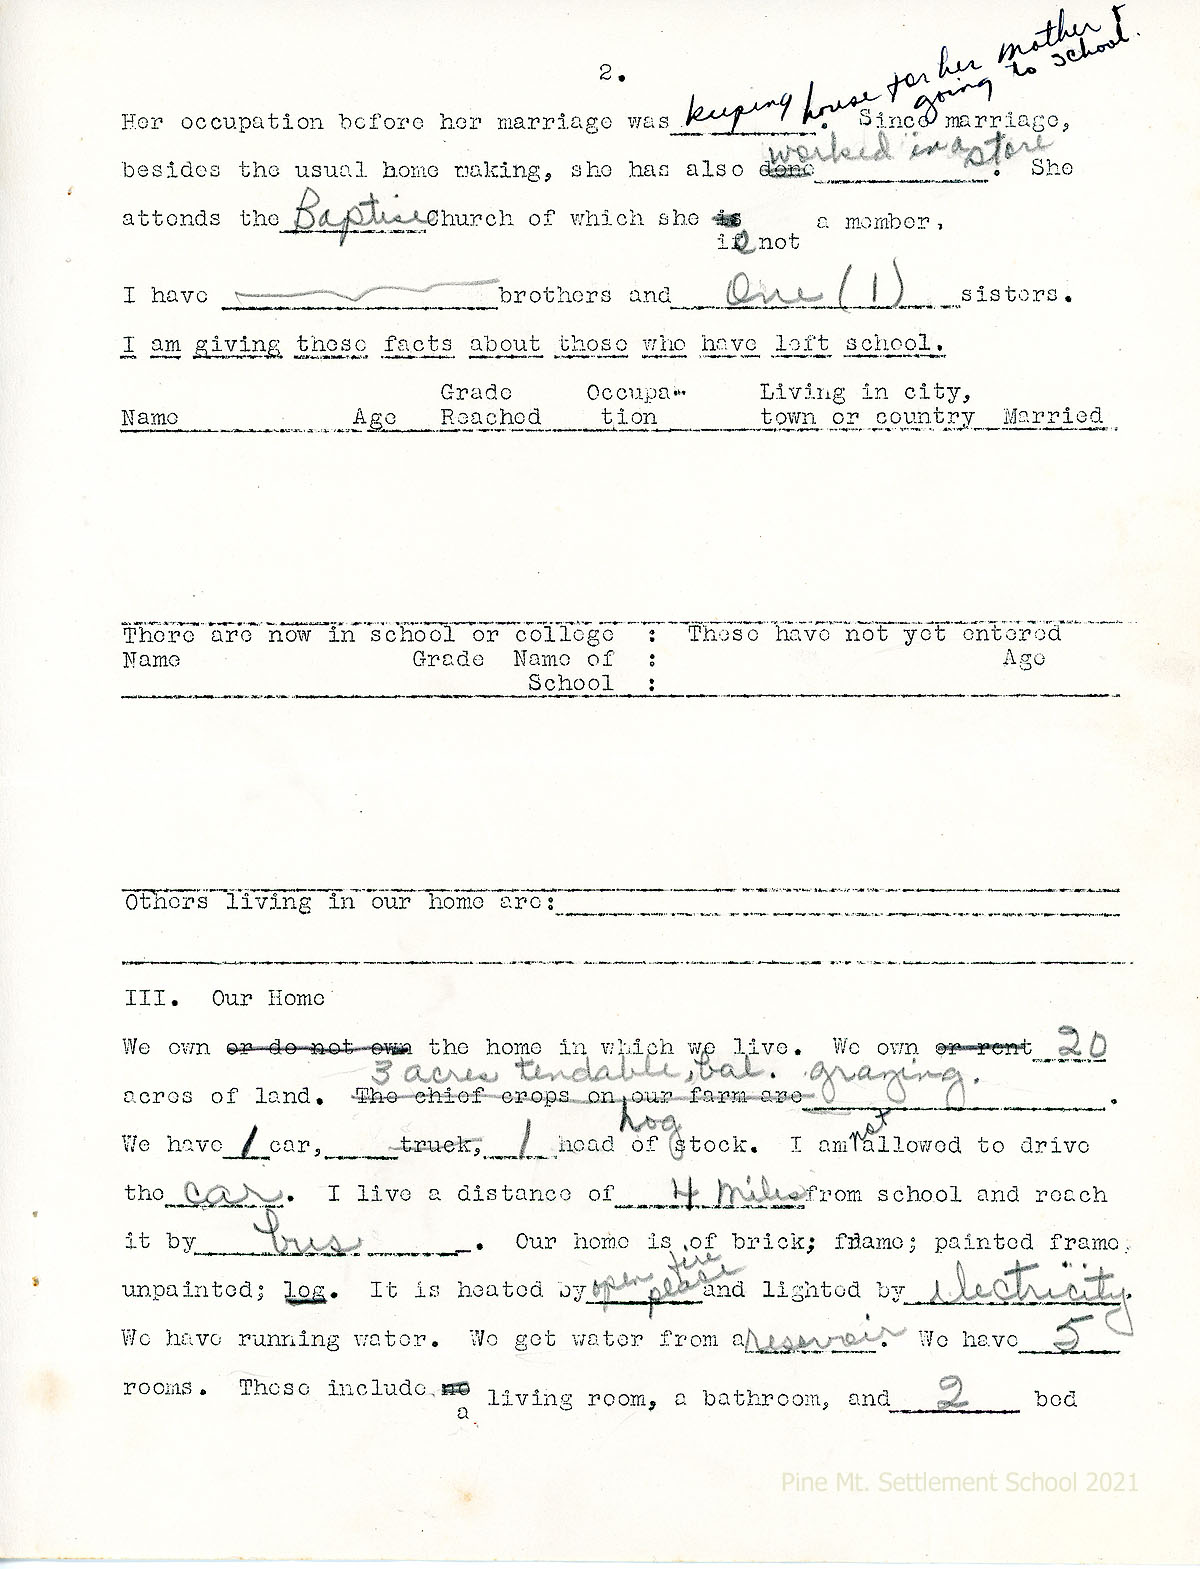 2.
Her occupation before her marriage was keeping house for her mother & going to school. Since marriage,
besides the usual home making, she has also done worked in a store. She
attends the Baptist Church of which she is a member,
is not
I have brothers and One (1) sisters.
I am giving these facts about those who have left school.
Grade Occupa- Living in city,
Name Age Reached tion town or country Married
There are now in school or college : These have not yet entered
Name Grade Name of : Age
School :
Others living in our home are:
III. Our Home
We own or do not own the home in which we live. We own or rent 20
3 acres tendable, bal. grazing.
acres of land. The chief crops on our farm are .
We have 1 car, truck, 1 head of hog stock. I am not allowed to drive
the car. I live a distance of 4 miles from school and reach
it by bus . Our home is of brick; frame; painted frame;
unpainted; log. It is heated by open fire place and lighted by electricity.
We have running water. We get water from a resevoir. We have 5
rooms. These include no living room, a bathroom, and 2 bed
a
Pine Mt. Settlement School 2021